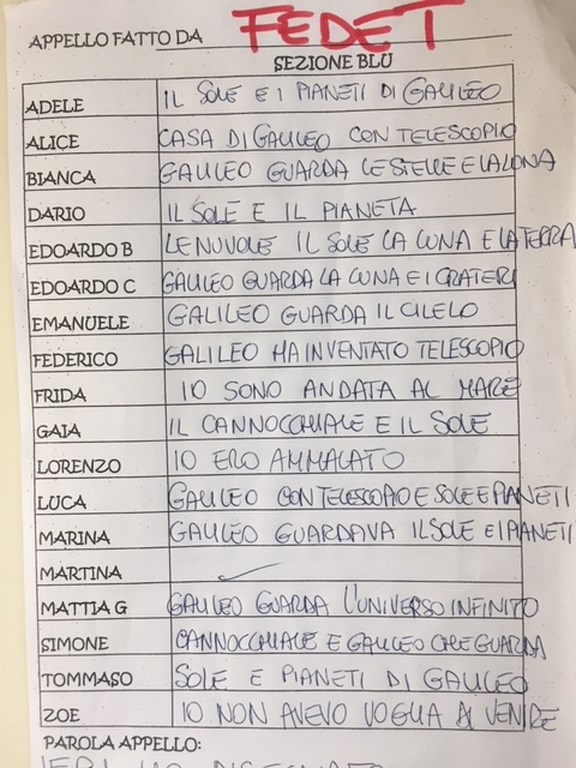 APPELLO FATTO DA FEDET
SEZIONE BLU
ADELE IL SOLE E I PIANETI DI GALILEO
ALICE CASA DI GALILEO CON TELESCOPIO
BIANCA GALILEO GUARDA LE STELLE E LA LUNA
DARIO IL SOLE E IL PIANETA
EDOARDO B LE NUVOLE IL SOLE LA LUNA E LA TERRA
EDOARDO C GALILEO GUARDA LA LUNA E I CRATERI
EMANUELE GALILEO GUARDA IL CILELO
FEDERICO GALILEO HA INVENTATO TELESCOPIO
FRIDA IO SONO ANDATA AL MARE
GAIA IL CANNOCCHIALE E IL SOLE
LORENZO IO ERO AMMALATO
LUCA GALILEO CON TELESCOPIO E SOLE E PIANETI
MARINA GALILEO GUARDAVA IL SOLE E I PIANETI
MARTINA
MATTIA G GALILEO GUARDA L'UNIVERSO INFINITO
SIMONE CANNOCCHIALE E GALILEO CHE GUARDA
TOMMASO SOLE E PIANETI DI GALILEO
ZOE IO NON AVEVO VOGLIA DI VENIRE
PAROLA APPELLO:
IERI HO DISEGNATO